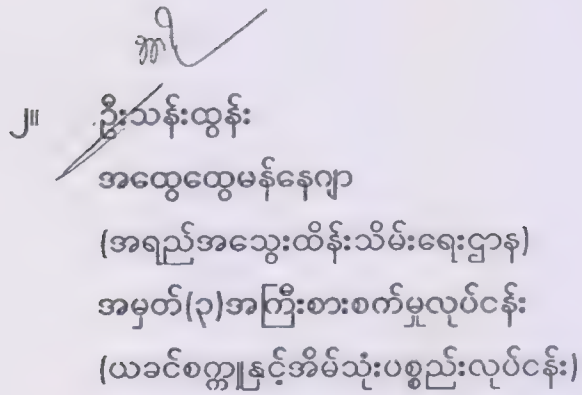 ၂။ ဦးသန်းထွန်း
အထွေထွေမန်နေဂျာ
(အရည်အသွေးထိန်းသိမ်းရေးဌာန)
အမှတ်(၃)အကြီးစားစက်မှုလုပ်ငန်း
(ယခင်စက္ကူနှင့်အိမ်သုံးပစ္စည်းလုပ်ငန်း)